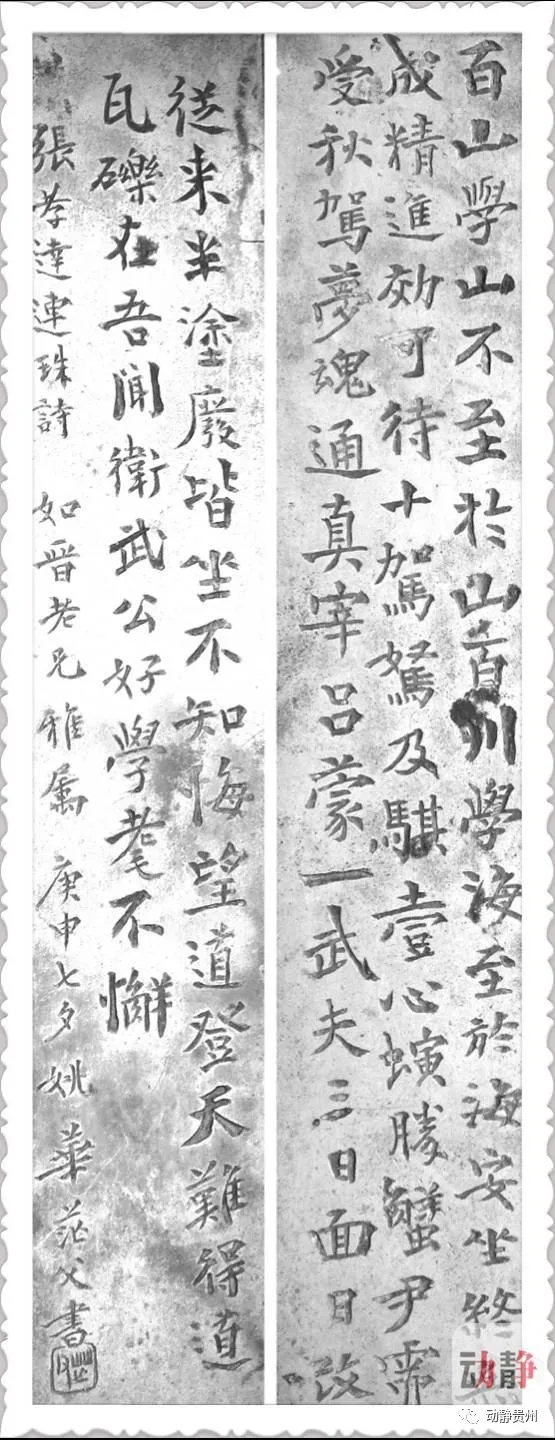 百山學山不至於山百川學海至於海安坐終
成精進効可待十駕駑及騏壹心螾勝蟹尹需
受秋駕夢魂通真宰吕蒙一武夫三日面目改
從来半塗廢皆坐不知悔望道登天難得道
瓦礫在吾聞衛武公好學耄不懈
張孝達連珠詩 如晉老兄雅屬 庚申七夕姚華茫父書
动静
动静贵州